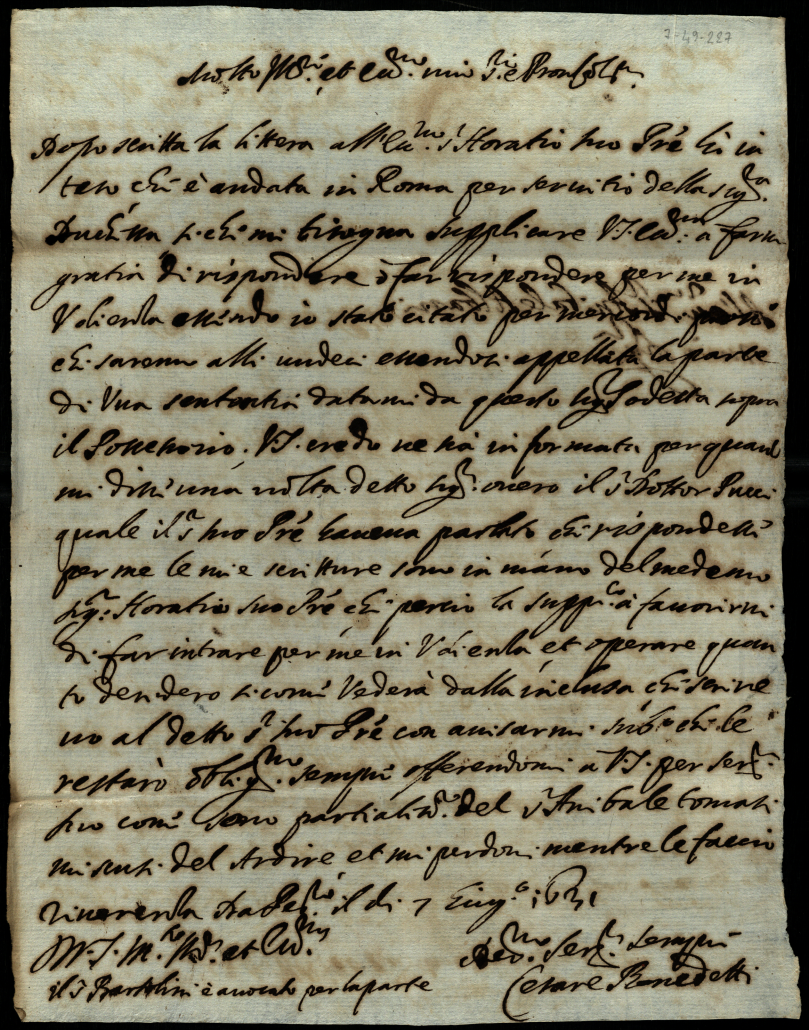 7-49-227
Molto Ill.re et Ecc.mo mio S.re e Pron Col.mo
Dopo scritta la littera all'Ecc.mo S.r Horatio suo P̃re hò in
teso che è andata in Roma per servitio della Sig.ra
Duchessa si che mi bisogna supplicare V.S. Ecc.ma a farmi
gratia di rispondere ò far rispondere per me in
essendo io stato citato per mercordi
che saremo alli undeci essendosi appellata la parte
di Una sententia datami da questo Sig.r Podestà sopra
il Possessorio. V.S. credo ne hà informata per quanto
mi disse una volta detto Sig.r overo il S.r Dottor Pucci
quale il S.r suo P̃re haveva parlato che rispondesse
per me le mie scritture sono in máno del medemo
Sig.r Horatio suo P̃re che perciò la supp.co à favorirmi
di far intrare per me in et operare quan
to desidero si come Vederà dalla inclusa che scrive
vo al detto S.r suo P̃re con avisarmi sub.o che le
restarò oblig.mo sempre offerendomi a V.S. per ser.re
suo come sono partialiss.o del S.r Anibale
mi scusi del Ardire et mi perdoni mentre le faccio
riverenza Da il di 7 Giug.o 1631
Di V.S. M.to Ill.re et Ecc.ma
Dev.mo Ser.re sempre
Cesare Benedetti
il S.r Bartolini è avocato per la parte